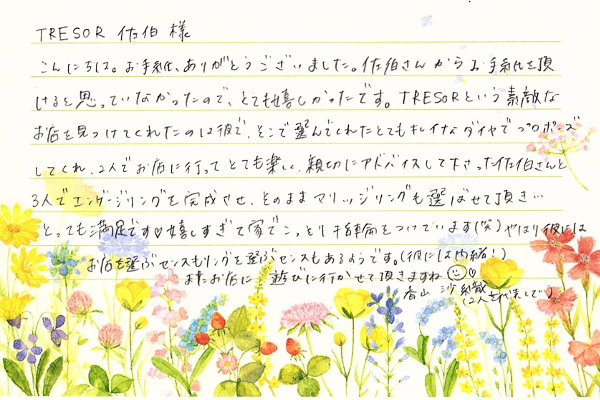 TRESOR 佐伯 様
こんにちは。お手紙、ありがとうございました。佐伯さんからお手紙を頂
けると思っていなかったので、とても嬉しかったです。TRESORという素敵な
お店を見つけてくれたのは彼で、そこで選んでくれたとてもキレイなダイヤでプロポーズ
してくれ、2人でお店に行ってとても楽しく、親切にアドバイスして下さった佐伯さんと
3人でエンゲージリングを完成させ、そのままマリッジリングも選ばせて頂き…
とっても満足です♡嬉しすぎて家でこっそり両方をつけています(笑)やはり彼には
お店を選ぶセンスもリングを選ぶセンスもあるようです。(彼には内緒!)
またお店に遊びに行かせて頂きますね♡
香山 沙織
(2人を代表して)。